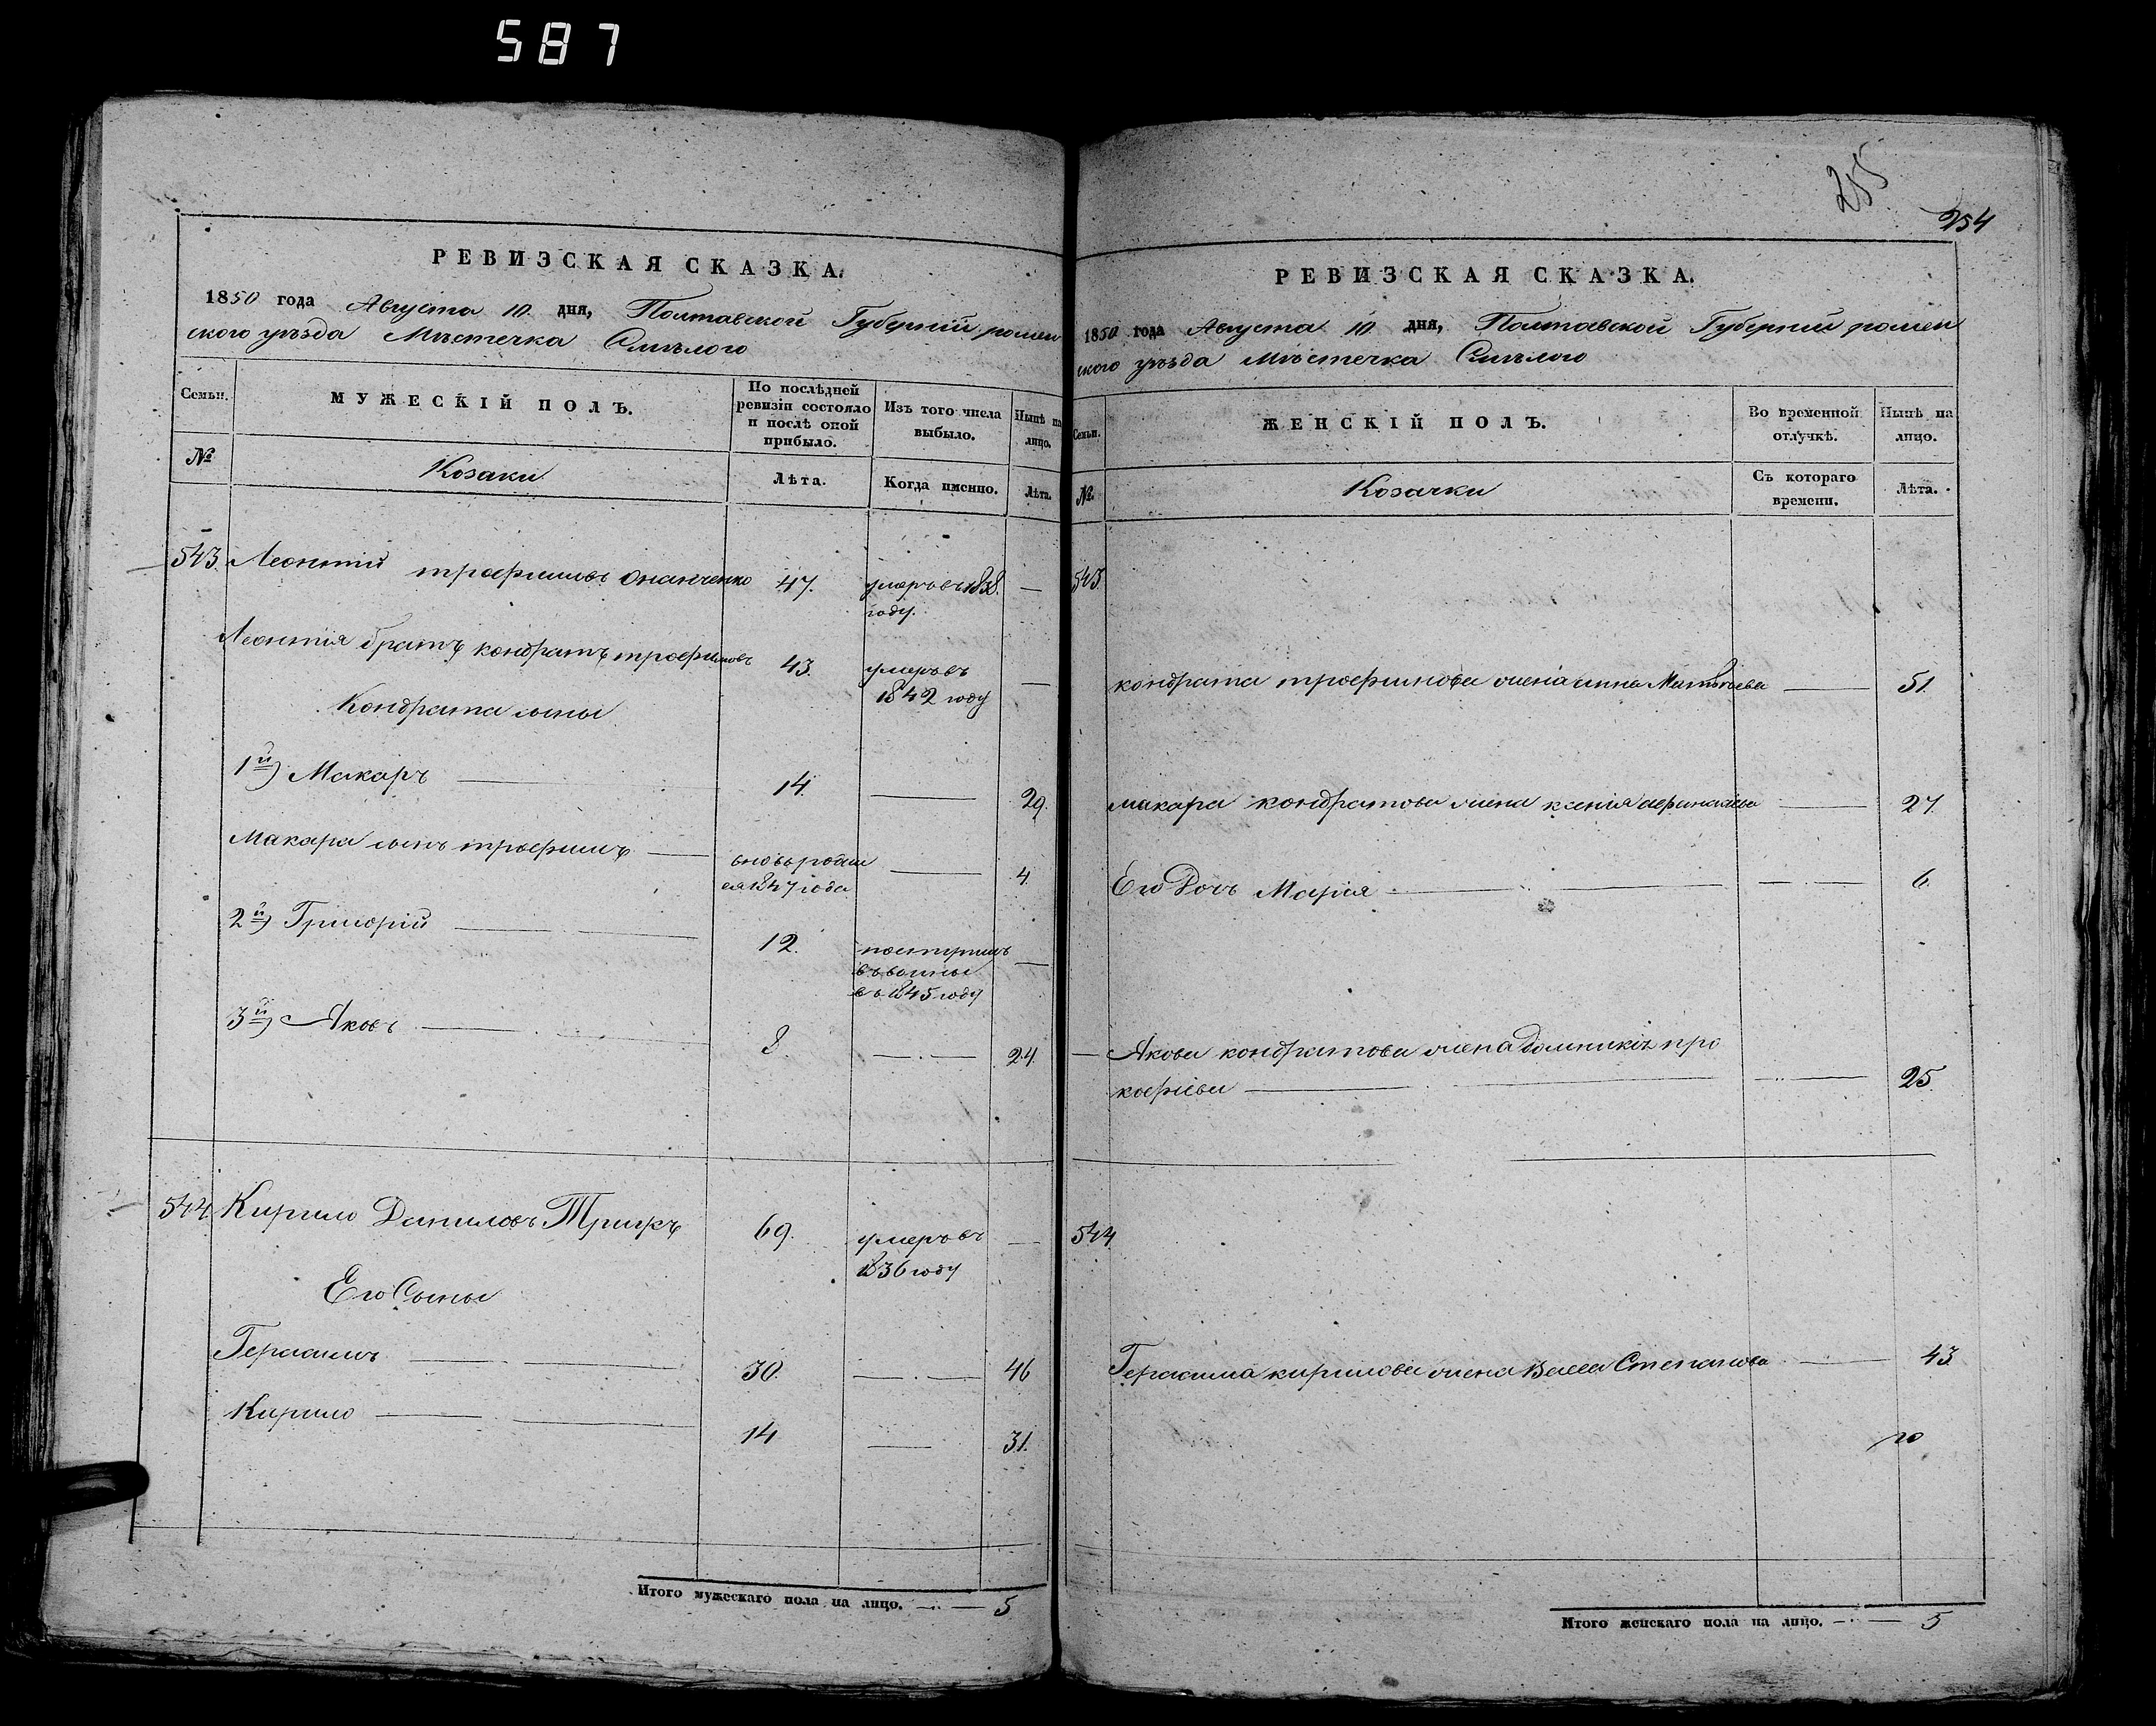 587
РЕВИЗСКАЯ СКАЗКА.
1850 года Августа 10 дня, Полтавской Губерніи ромен
ского уѣзда Мѣстечка Смѣлого
Семьи.
МУЖЕСКІЙ ПОЛЪ.
По послѣдней
ревизіи состояло
и послѣ оной
прибыло.
Изъ того числа
выбыло.
Нынѣ на
лицо.
№
Козаки
Лѣта.
Когда именно.
Лѣта.
543. Леонтій трофимовъ Онанченко 47. умеръ въ 1838. —
году.
Леонтія братъ кондратъ трофимовъ 43. умеръ въ —
1842 году
Кондрата сыны
1й) Макаръ — 14. — 29.
Макара сынъ трофимъ — вновь родил — 4.
ся 1847 года
2й) Григорій — 12. поступилъ —
въ
въ 1845 году
3й) Яковъ — 8. — 24.
544 Кирило Даниловъ 69. умеръ въ —
1836 году
Его Сыны
Герасимъ — 30. — 46
Кирило — 14 — 31.
Итого мужескаго пола на лицо. — 5
255
254
РЕВИЗСКАЯ СКАЗКА.
1850 года Августа 10 дня, Полтавской Губерніи ромен
ского уѣзда Мѣстечка Смѣлого
Семьи.
ЖЕНСКІЙ ПОЛЪ.
Во временной
отлучкѣ.
Нынѣ на
лицо.
№
Козачки
Съ котораго
времени.
Лѣта.
543.
кондрата трофимова жена анна Матвѣева — 51.
макара кондратова жена ксенія афанасіева — 27.
Его Дочь Марія — 6.
— Якова кондратова жена домникія про
кофіева — 25.
544
Герасима кирилова жена Васса Степанова — 43
Итого женскаго пола на лицо. — 5